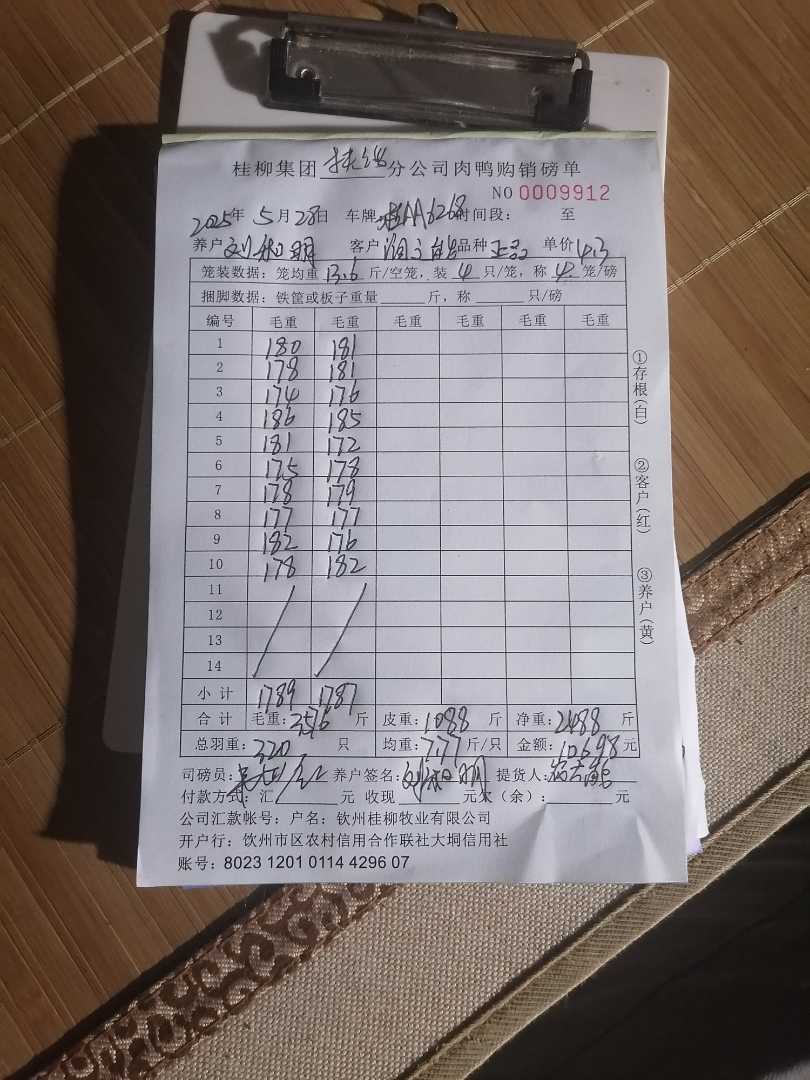 桂柳集团 分公司肉鸭购销磅单
NO 0009912
2025年 5月28日 车牌: AA6268 时间段: 至
养户 刘 明 客户 品种 正品 单价 4.3
笼装数据: 笼均重 13.6 斤/空笼, 装 4 只/笼, 称 4 笼/磅
捆脚数据: 铁筐或板子重量 斤, 称 只/磅
编号 毛重 毛重 毛重 毛重 毛重 毛重
1 180 181
2 178 181
3 174 176
4 186 185
5 181 172
6 175 178
7 178 179
8 177 177
9 182 176
10 178 182
11
12
13
14
小计 1789 1787
合计 毛重: 3576 斤 皮重: 1088 斤 净重: 2488 斤
总羽重: 320 只 均重: 7.77 斤/只 金额: 10698 元
司磅员: 养户签名: 刘 明 提货人:
付款方式: 汇 元 收现 元欠(余): 元
公司汇款帐号: 户名: 钦州桂柳牧业有限公司
开户行: 钦州市区农村信用合作联社大垌信用社
账号: 8023 1201 0114 4296 07
①存根(白)
②客户(红)
③养户(黄)